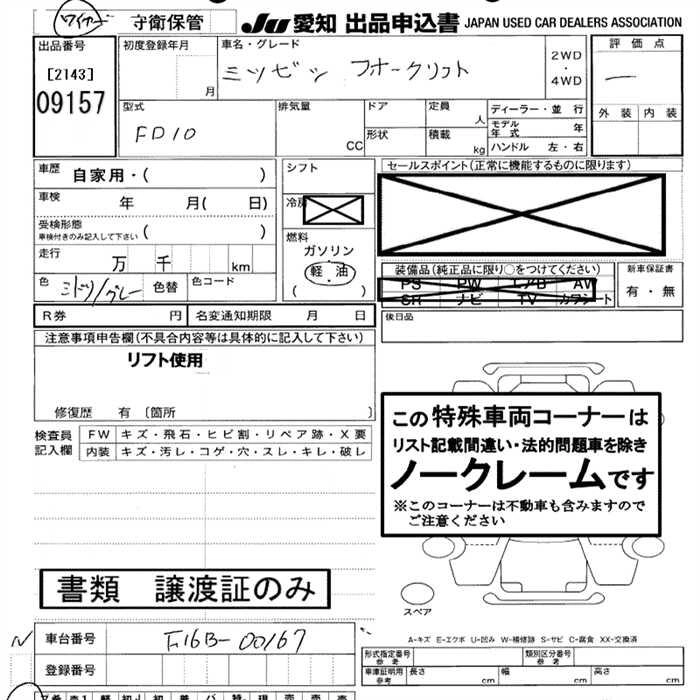 ワイヤード 守衛保管 JU 愛知 出品申込書 JAPAN USED CAR DEALERS ASSOCIATION
出品番号 初度登録年月 車名・グレード 評価点
[2143] 月 ミツビシ フオークリフト 2WD・4WD 一
09157 外装 内装
型式 排気量 ドア 定員 人 ディーラー・並行
FD10 CC 形状 積載 kg モデル年式 年
ハンドル 左・右
車歴 自家用・( ) シフト セールスポイント(正常に機能するものに限ります)
車検 年 月( 日) 冷房
受検形態 ( ) 燃料
車検付きのみ記入して下さい ガソリン
走行 万 千 km 軽油 装備品(純正品に限り○をつけてください) 新車保証書
色 ミドリ/グレー 色替 色コード ( ) PS PW エアB AW 有・無
SR ナビ TV カワシート
R券 円 名変通知期限 月 日 後日品
注意事項申告欄(不具合内容等は具体的に記入して下さい)
リフト使用
修復歴 有 〔箇所 〕
検査員 FW キズ・飛石・ヒビ割・リペア跡・X要
記入欄 内装 キズ・汚レ・コゲ・穴・スレ・キレ・破レ
この特殊車両コーナーは
リスト記載間違い・法的問題車を除き
ノークレームです
※このコーナーは不動車も含みますので
ご注意ください
書類 譲渡証のみ
スペア
A-キズ E-エクボ U-凹み W-補修跡 S-サビ C-腐食 XX-交換済
N 車台番号 F16B-00167
登録番号
形式指定番号 参考 類別区分番号 参考
車庫証明用 参考 長さ cm 幅 cm 高さ cm